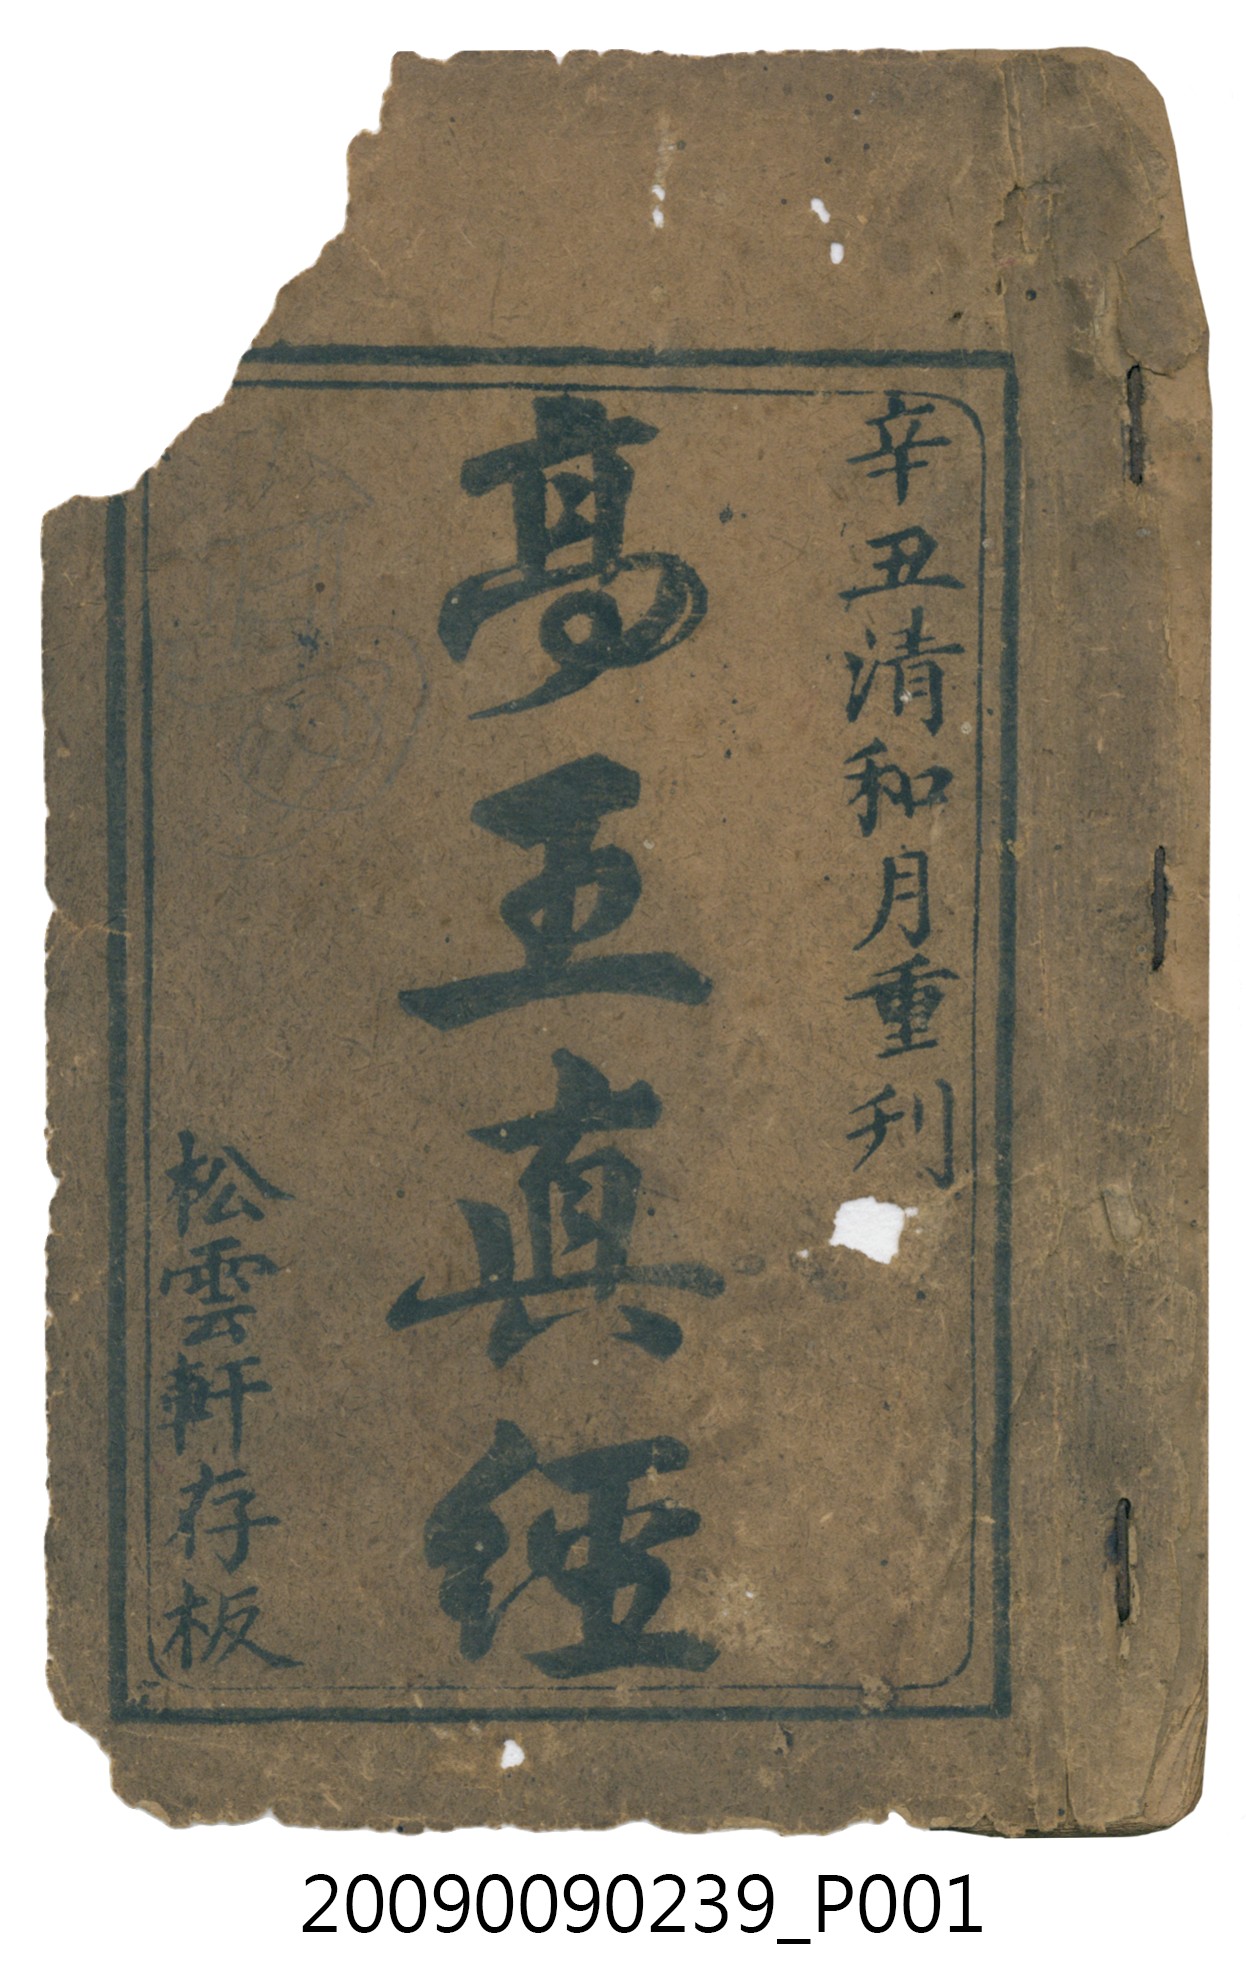 辛丑清和月重刋
高王真經
松雲軒存板
20090090239_P001